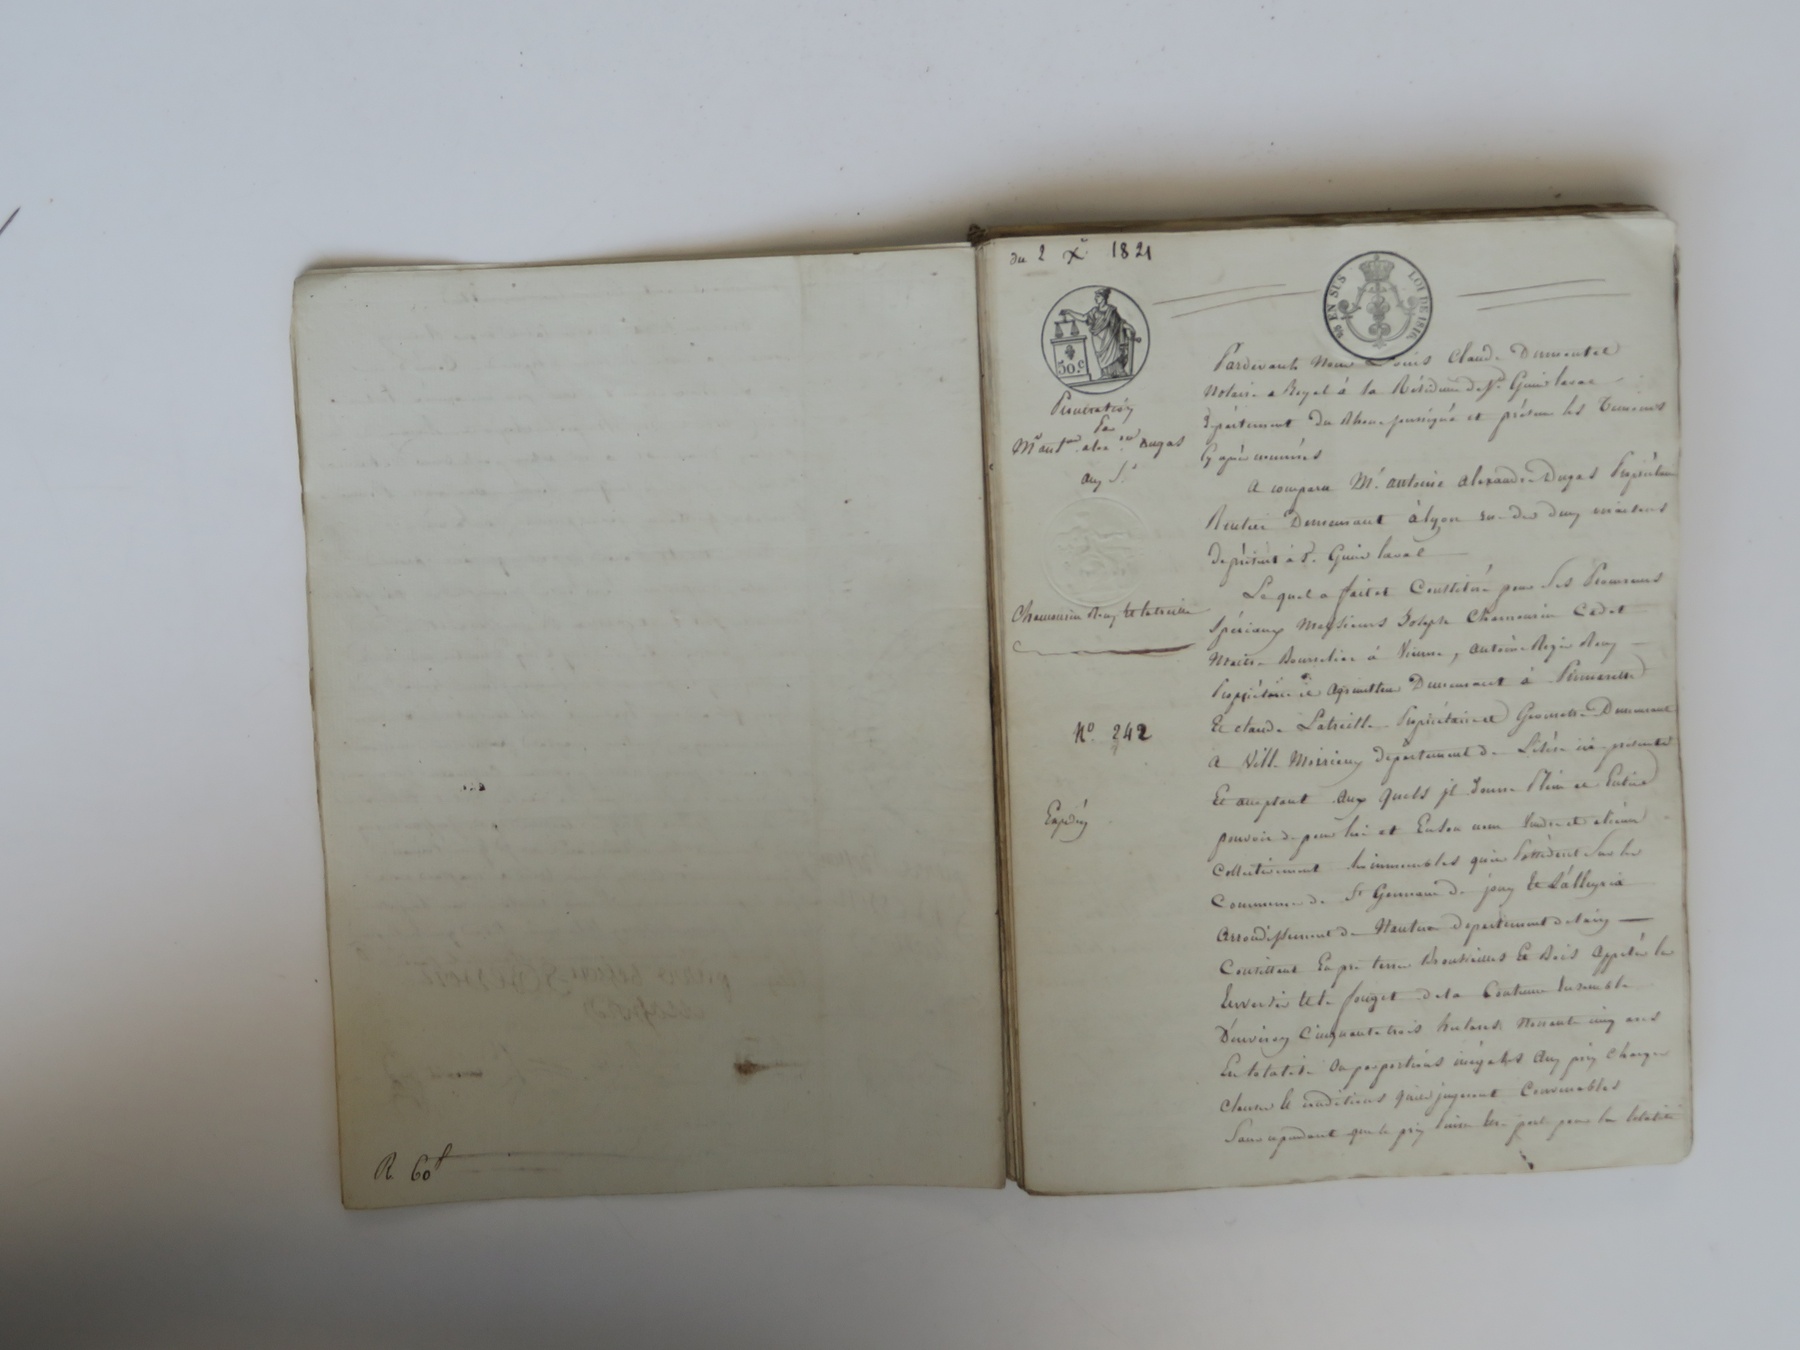 R. 60f
du 2 Xre 1821
30.c
EN SUS LOI DE 1816
Procuration
Par
Mr antne alexdre Dugas
aux Srs
Chamoncin Remy et Latreille
No. 242
Expdiez
Pardevant Nous Louis Claude Dumontet
Notaire Royal à la Résidence de St. Genis laval
Département du Rhone soussigné et présens les Temoins
Cy après nommés
A comparu Mr. antoine alexandre Dugas Propriétaire
Rentier Demeurant à lyon rue des deux maisons
de présent à St. Genis laval
Lequel a fait et Constitué pour Ses Procureurs
Spéciaux Messieurs Joseph Chamoncin Cadet
Maitre Bourrelier à Vienne, antoine Remy
Propriétaire et Agriculteur Demeurant à
Et claude Latreille Propriétaire et Geometre Demeurant
a Ville Moirieux département de L'isère ici présents
Et acceptant aux quels il Donne Plein et Entier
pouvoir de pour lui et En son nom Vendre et aliéner
Collectivement les immeubles qu'il Possédent Sur les
Communes de St Germain de joux et Lalleyria
arrondissement de Nantua département de lain
Consistant En pré terres Brousailles Et Bois Appelés
et le de la Ensemble
D'environ Cinquante trois hectares Nonante cinq ares
En totalité ou par portions inégales aux prix charges
clauses et conditions qu'ils jugeront Convenables
Sans cependant que le prix puisse pour la totalité